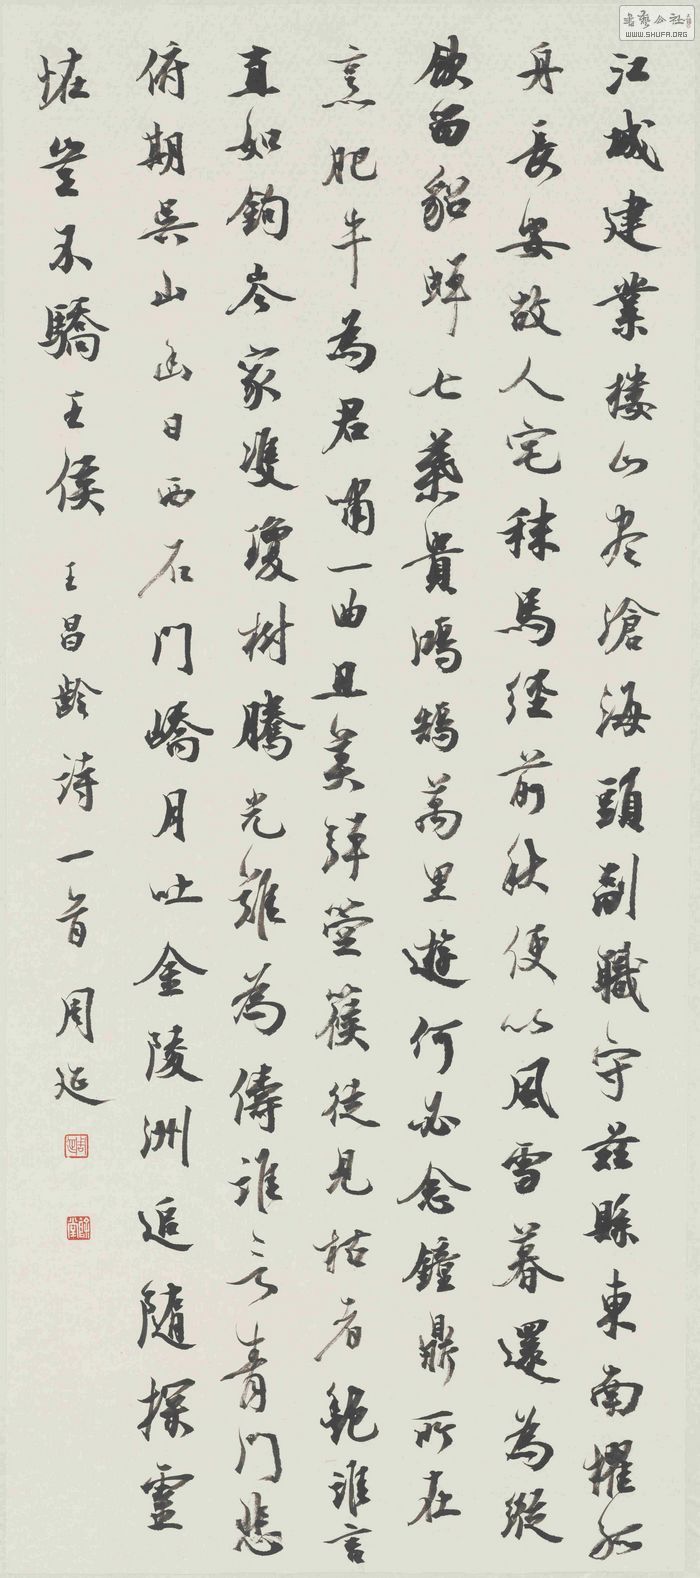 江城建業楼山尽滄海頭副職守茲縣東南櫂孤
舟長安故人宅秣馬經前秋便以風雪暮還為縱
飲留貂蟬七葉貴鴻鵠萬里遊何必念鐘鼎所在
烹肥牛為君嘯一曲且莫彈箜篌徒見枯者艷誰言
直如鉤岑家雙瓊樹騰光難為儔誰言青門悲
俯期吳山幽日西石門嶠月吐金陵洲追隨探靈
怪豈不驕王侯 王昌齡詩一首 周延
書藝公社
WWW.SHUFA.ORG